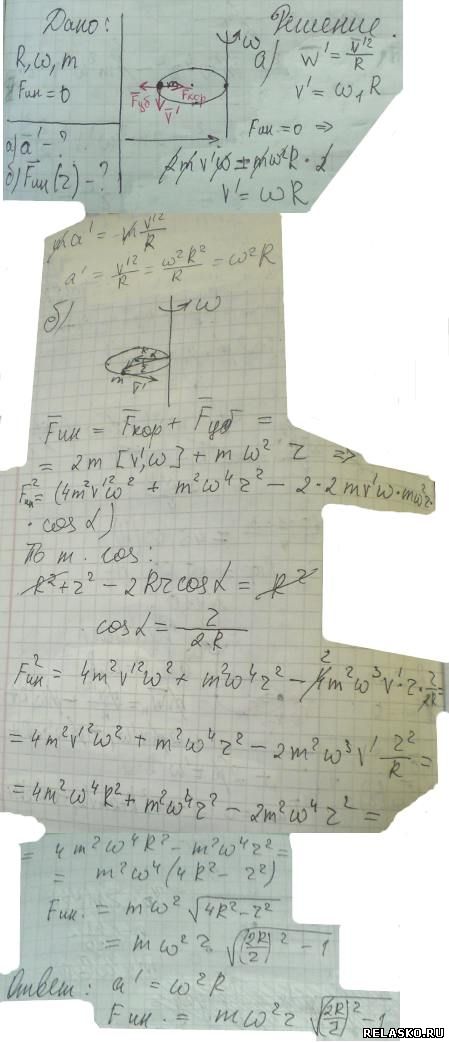 Дано:
R, ω, m
Fин = 0
а) a' - ?
б) Fин(r) - ?
ω
Fцб
m
Fкор
V'
Решение.
а) w' = v'²/R
v' = ω₁R
Fин = 0 ⇒
2mv'ω = mω²R · 2
v' = ωR
ma' = -m v'²/R
a' = v'²/R = ω²R²/R = ω²R
б)
ω
R
α
r
m
V'
F̄ин = F̄кор + F̄цб =
= 2m [v',ω] + mω² r ⇒
F²ин = (4m²v'²ω² + m²ω⁴r² - 2·2mv'ω·mω²r·
· cos α)
По т. cos:
R² + r² - 2Rr cos α = R²
cos α = r/2R
F²ин = 4m²v'²ω² + m²ω⁴r² - 4m²ω³v'·r·r/2R
= 4m²v'²ω² + m²ω⁴r² - 2m²ω³v' r²/R =
= 4m²ω⁴R² + m²ω⁴r² - 2m²ω⁴r² =
= 4m²ω⁴R² - m²ω⁴r² =
= m²ω⁴(4R² - r²)
Fин. = mω² √(4R² - r²)
= mω²r √((2R/r)² - 1)
Ответ: a' = ω²R
Fин. = mω²r √((2R/r)² - 1)
RELASKO.RU